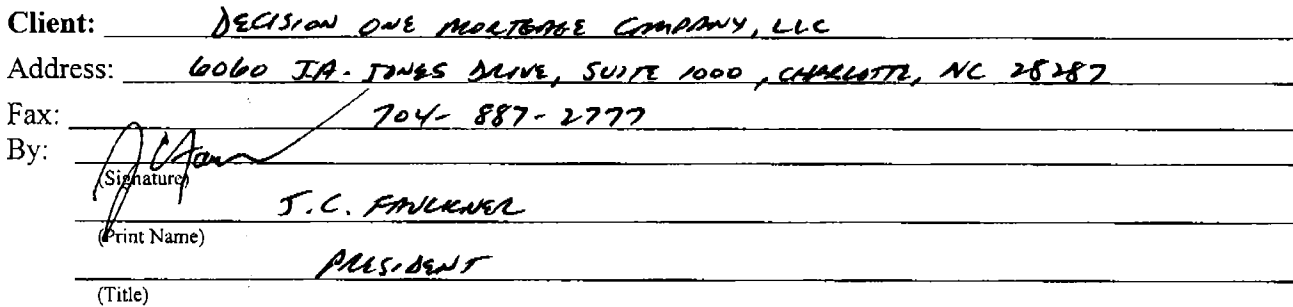 Client: DECISION ONE MORTGAGE COMPANY, LLC
Address: 6060 J.A. JONES DRIVE, SUITE 1000, CHARLOTTE, NC 28287
Fax: 704-887-2777
By:
(Signature)
J.C. FAULKNER
(Print Name)
PRESIDENT
(Title)